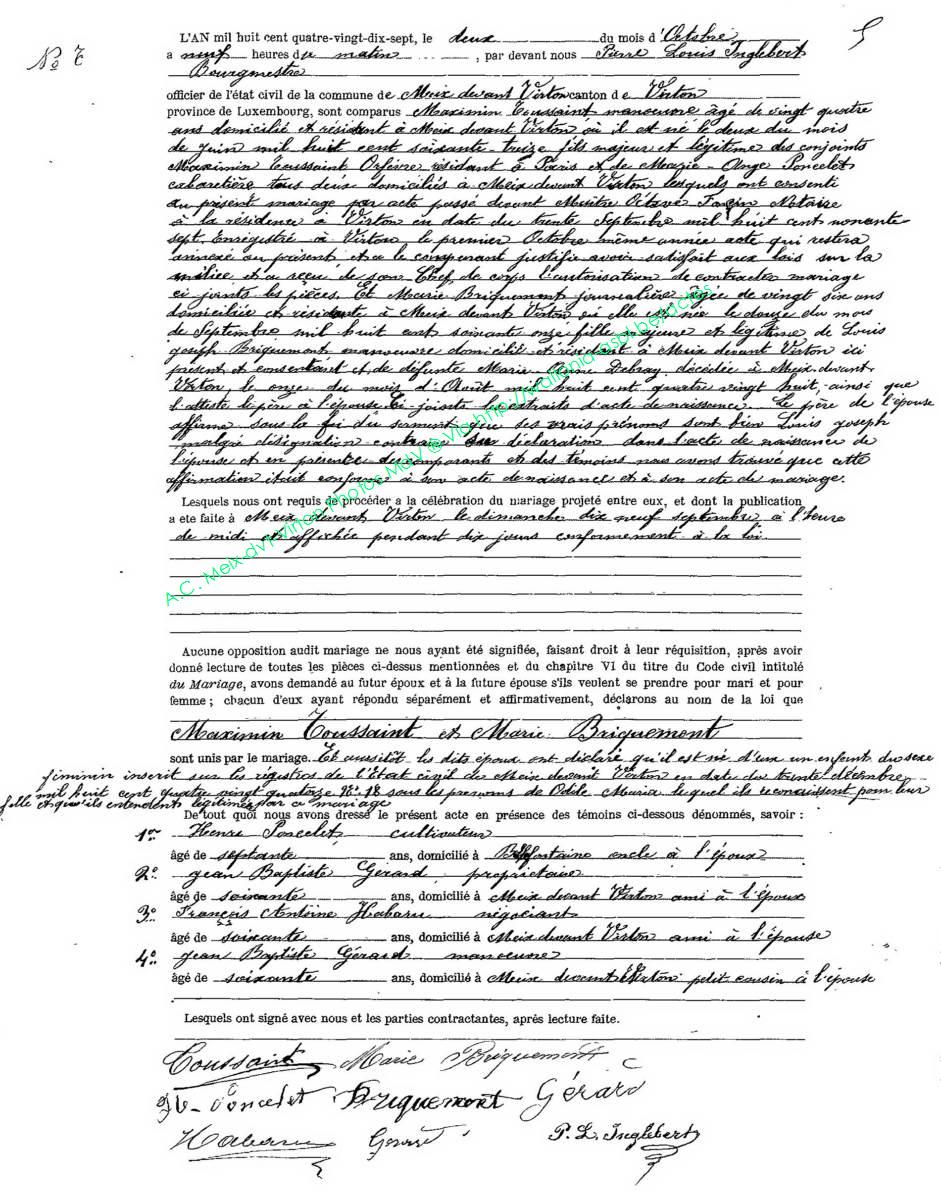 5
No 7
L'AN mil huit cent quatre-vingt-dix-sept, le deux du mois d'Octobre
a neuf heures du matin , par devant nous Pierre Louis Inglebert
Bourgmestre
officier de l'état civil de la commune de Meix devant Virton canton de Virton
province de Luxembourg, sont comparus Maximin Toussaint manoeuvre âgé de vingt quatre
ans domicilié et résidant à Meix devant Virton où il est né le deux du mois
de Juin mil huit cent soixante treize fils majeur et légitime des conjoints
Maximin Toussaint Orfèvre résidant à Paris et de Marie-Ange Poncelet
cabaretière tous deux domiciliés à Meix devant Virton lesquels ont consenti
au présent mariage par acte passé devant Maître Octave Notaire
à la résidence à Virton en date du trente Septembre mil huit cent nonante
sept. Enregistré à Virton le premier Octobre même année acte qui restera
annexé au présent et a le comparant justifié avoir satisfait aux lois sur la
milice et a reçu de son Chef de corps l'autorisation de contracter mariage
ci joints les pièces. Et Marie Briquemont journalière âgée de vingt six ans
domiciliée et résidante à Meix devant Virton où elle est née le douze du mois
de Septembre mil huit cent soixante onze fille majeure et légitime de Louis
joseph Briquemont manoeuvre domicilié et résidant à Meix devant Virton ici
présent et consentant et de défunte Marie décédée à Meix devant
Virton, le onze du mois d'Août mil huit cent quatre vingt huit, ainsi que
l'atteste le père à l'épouse Ci-joints les extraits d'acte de naissance. Le père de l'épouse
affirme sous la foi du serment que ses vrais prénoms sont bien Louis joseph
malgré désignation contraire sur déclaration dans l'acte de naissance de
l'épouse et en présence des comparants et des témoins nous avons trouvé que cette
affirmation était conforme à son acte de naissance et à son acte de mariage.
Lesquels nous ont requis de procéder a la célébration du mariage projeté entre eux, et dont la publication
a ete faite à Meix devant Virton le dimanche dix neuf septembre à l'heure
de midi et affichée pendant dix jours conformement à la loi
A.C. Meix-dvt-Virton Photos MdV @ Via http://wallonia-asbl.be/actes
Aucune opposition audit mariage ne nous ayant été signifiée, faisant droit à leur réquisition, après avoir
donné lecture de toutes les pièces ci-dessus mentionnées et du chapitre VI du titre du Code civil intitulé
du Mariage, avons demandé au futur époux et à la future épouse s'ils veulent se prendre pour mari et pour
femme ; chacun d'eux ayant répondu séparément et affirmativement, déclarons au nom de la loi que
Maximin Toussaint et Marie Briquemont
sont unis par le mariage. Et aussitôt les dits époux ont déclaré qu'il est né d'eux un enfant du sexe
féminin inscrit sur les régistres de l'État civil de Meix devant Virton en date du trente décembre
mil huit cent quatre vingt quatorze No 18 sous les prenoms de Odile Maria lequel ils reconnaissent pour leur
fille et qu'ils entendent légitimer par ce mariage
De tout quoi nous avons dressé le présent acte en présence des témoins ci-dessous dénommés, savoir :
1er Henri Poncelet cultivateur
âgé de septante ans, domicilié à Bellefontaine oncle à l'époux
2o jean Baptiste Gerard propriétaire
âgé de soixante ans, domicilié à Meix devant Virton ami à l'époux
3o François Antoine Habaru négociant
âgé de soixante ans, domicilié à Meix devant Virton ami à l'épouse
4o jean Baptiste Gérard manoeuvre
âgé de soixante ans, domicilié à Meix devant Virton petit cousin à l'épouse
Lesquels ont signé avec nous et les parties contractantes, après lecture faite.
Toussaint Marie Briquemont
Poncelet Briquemont Gérard
Habaru Gerard P. L. Inglebert